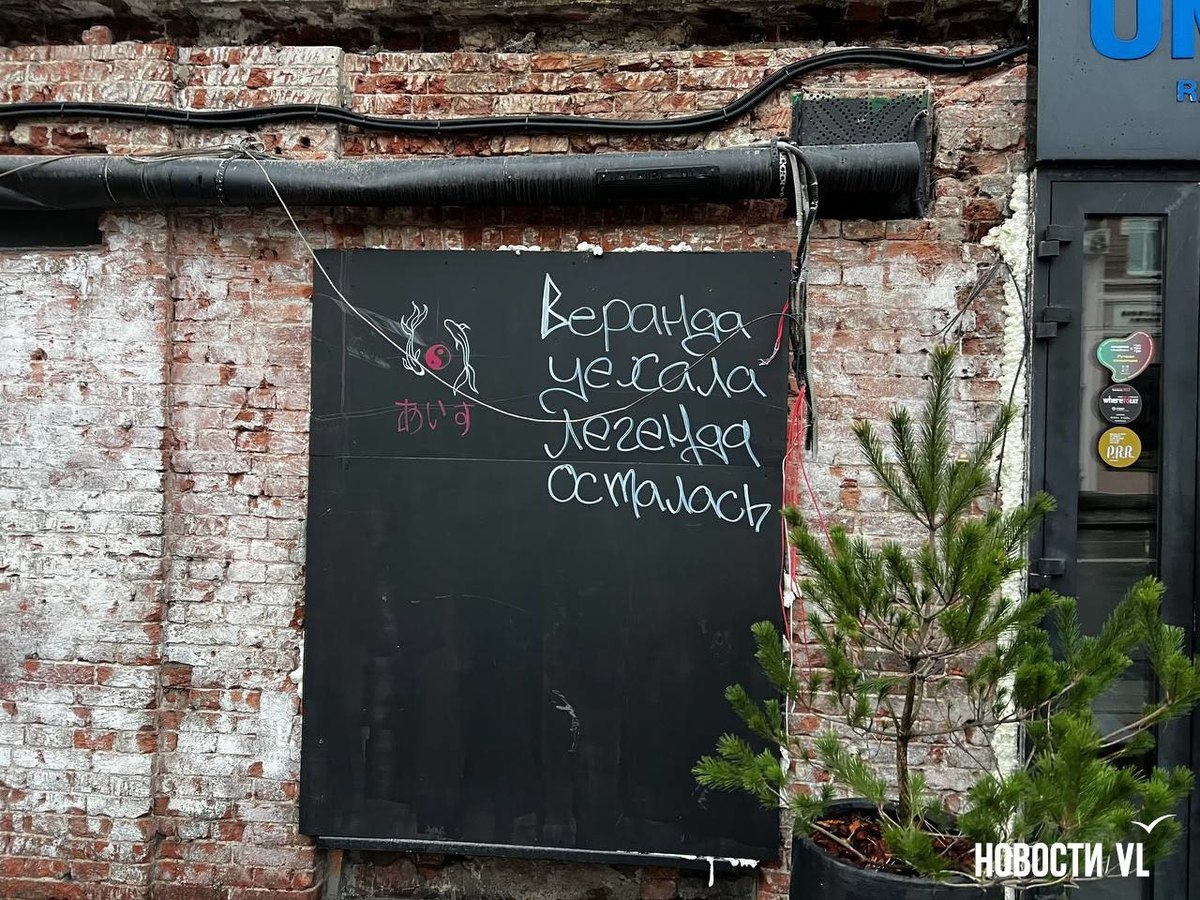 Веранда
уехала
Легенда
осталась
あいす
where to eat
P.R.R.
НОВОСТИ VL